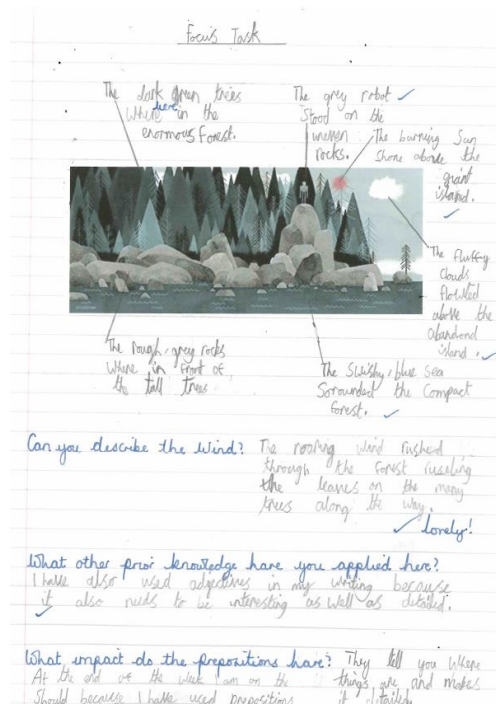 Focus Task
The dark green trees
Where here in the
enormous forest.
The grey robot
Stood on the
uneven
rocks.
The burning Sun
Shone above the
giant
island.
The Fluffy
Clouds
flowted
above the
abandond
island.
The rough, grey rocks
Where in front of
the tall trees
The Swishy, blue Sea
Sorounded the Compact
Forest.
Can you describe the Wind? The roaring wind rushed
through the forest russling
the leaves on the many
trees along the way.
lovely!
What other prior knowledge have you applied here?
I have also used adjectives in my writing because
it also needs to be interesting as well as detailed.
What impact do the prepositions have? They tell you Where
things are and makes
it
At the end of the week I am on the
Should because I have used prepositions